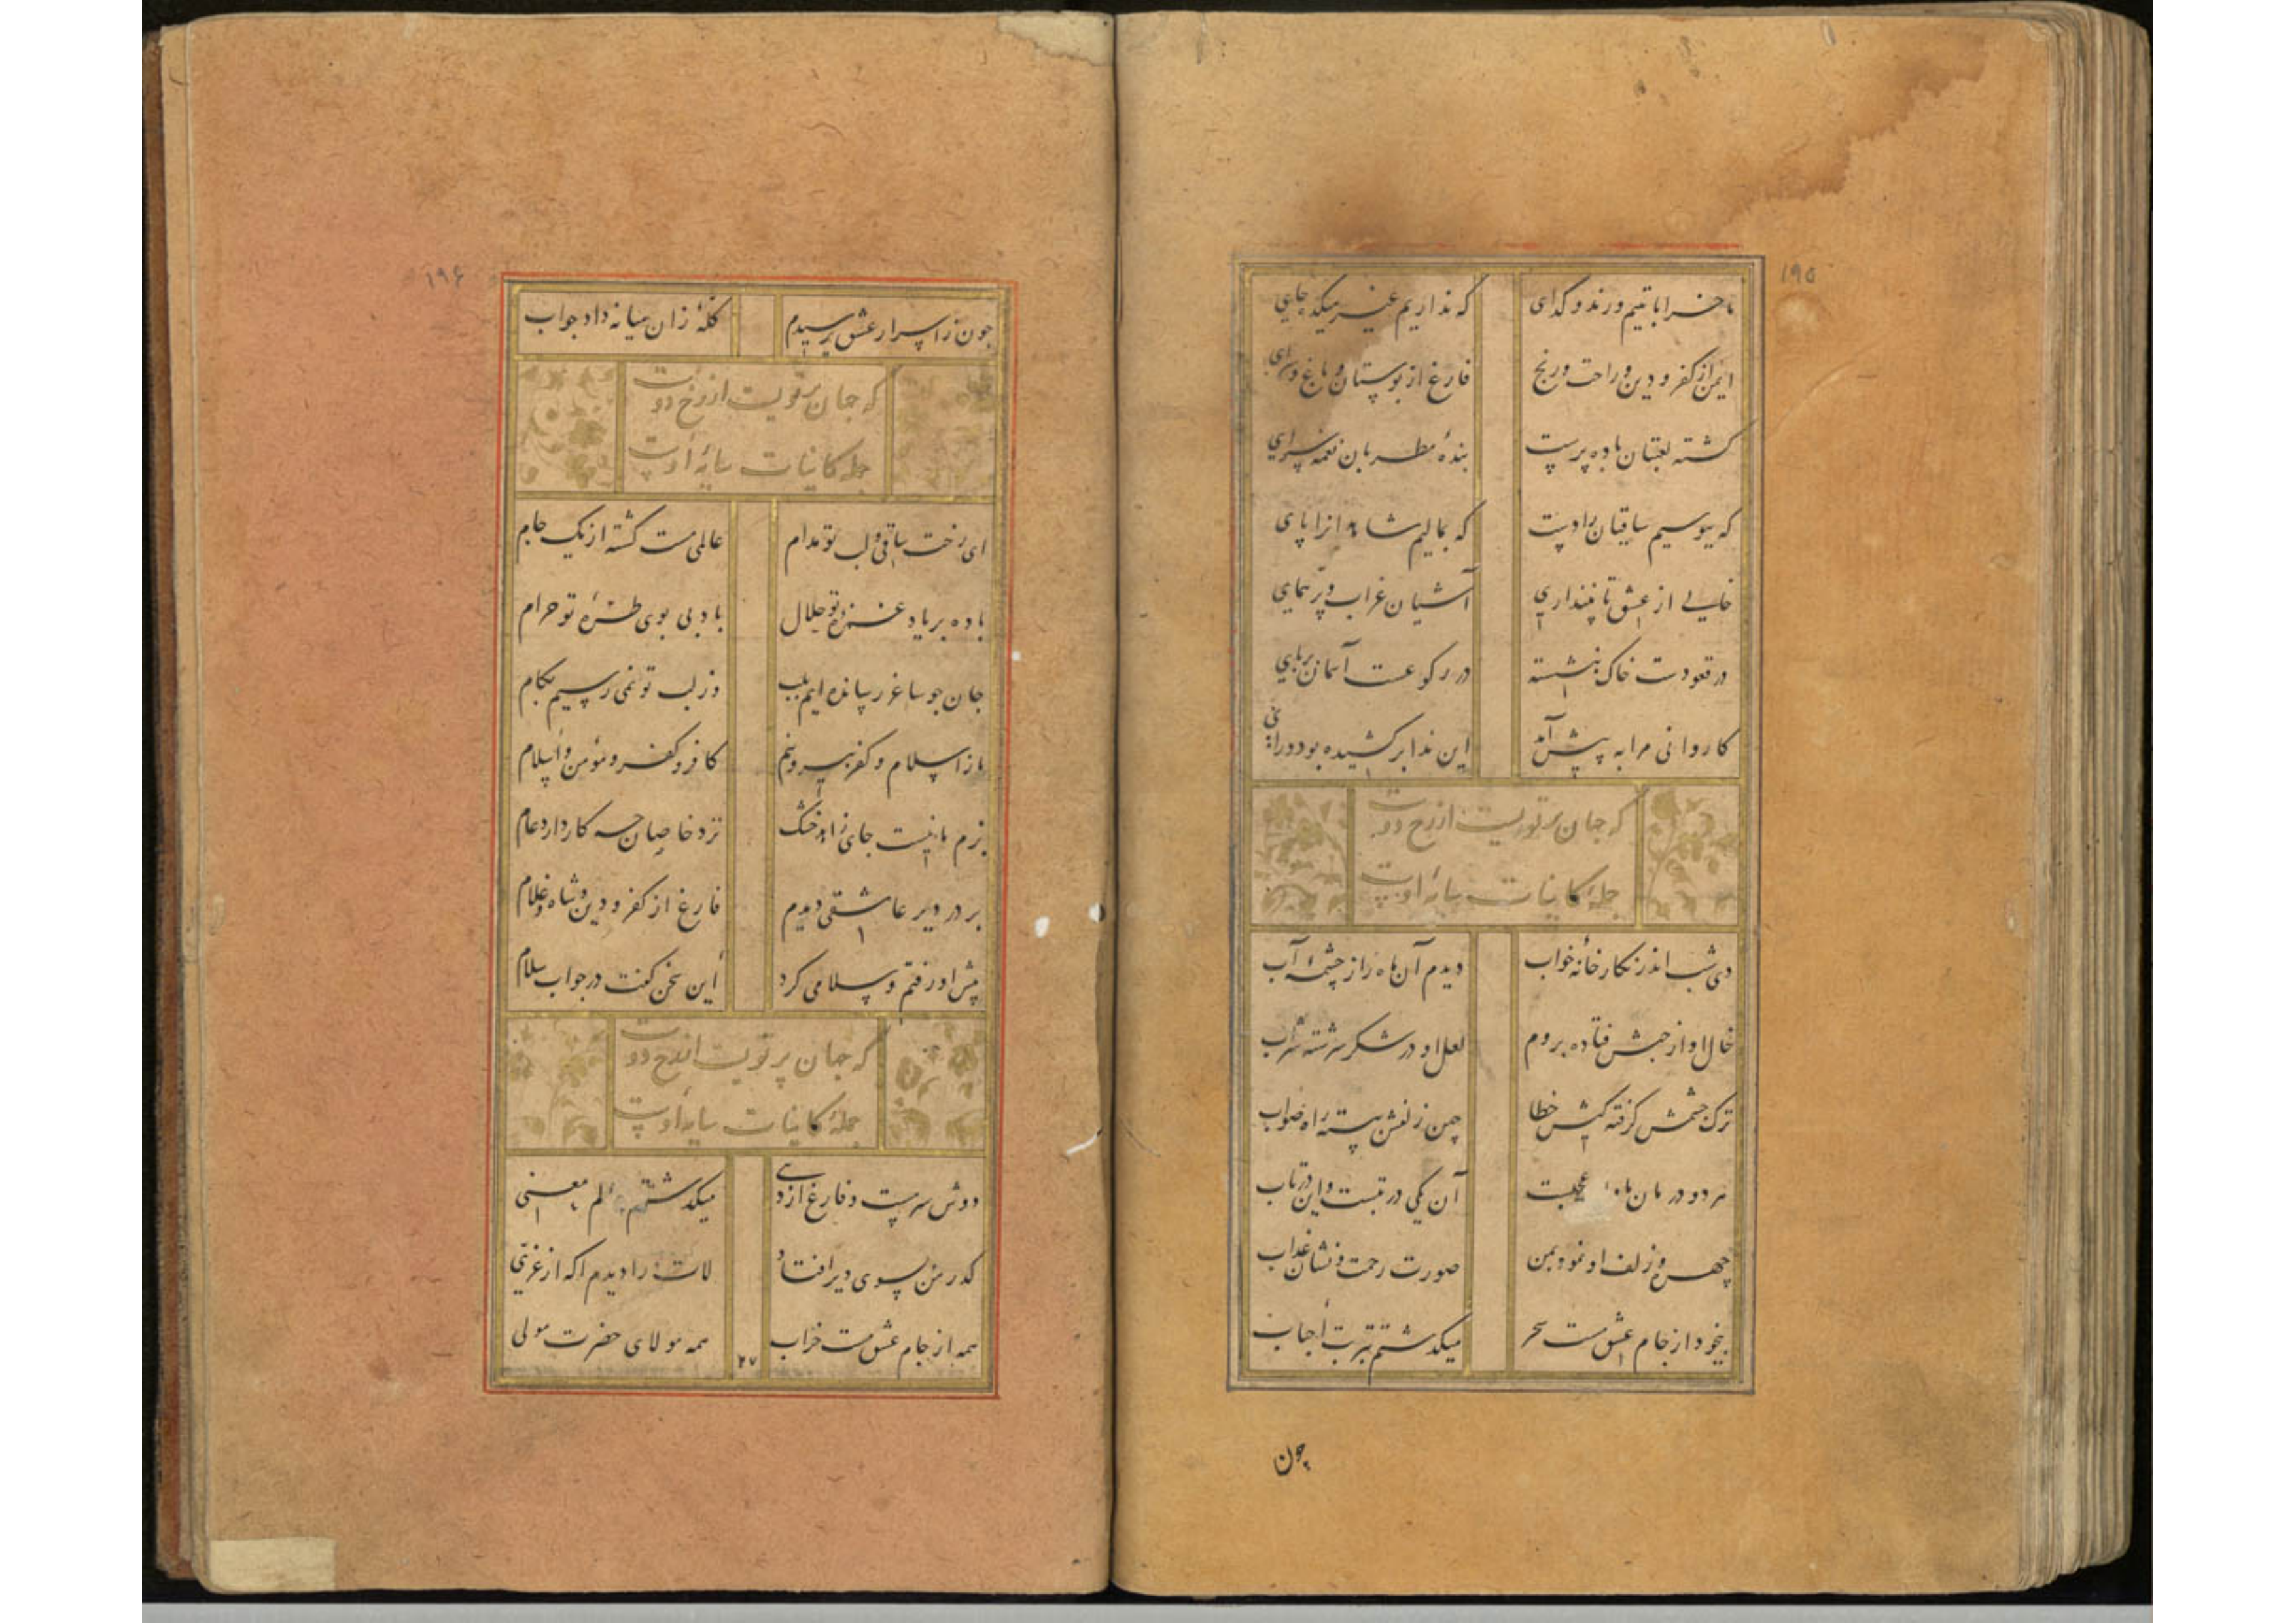 ۱۹۵
ما خراباتییم و رند و گدای
که نداریم غیر میکده جای
ایمن از کفر و دین و راحت و رنج
فارغ از بوستان و باغ و سرای
گشته لعبتان باده پرست
بندهٔ مطربان نغمه سرای
که ببوسیم ساقیان را دست
که بمالیم شاهدانرا پای
خالی از عشق تا نپنداری
آشیان غراب و پر همای
در قعودست خاک بنشسته
در رکوعست آسمان برپای
کاروانی مرا به پیش آمد
این ندا برکشیده بود درای
که جهان پرتویست از رخ دوست
جملهٔ کاینات سایهٔ اوست
دی شب اندر نگارخانهٔ خواب
دیدم آن ماه را ز چشمهٔ آب
خال او از حبش فتاده بروم
لعل او در شکر سرشته شراب
ترک چشمش گرفته کیش خطا
چین زلفش ببسته راه صواب
هر دو در مان ما عجبست
آن یکی در تبست و این در تاب
چهره و زلف او نمود بمن
صورت رحمت و نشان عذاب
بیخود از جام عشق مست سحر
میگذشتم بتربت احباب
چون
۱۹۶
چون ز اسرار عشق پرسیدم
کلهٔ زان میانه داد جواب
که جهان پرتویست از رخ دوست
جملهٔ کاینات سایهٔ اوست
ای رخت ساقی و لب تو مدام
عالمی مست گشته از یک جام
باده بر یاد غمزهٔ تو حلال
باد بی بوی طرهٔ تو حرام
جان چو ساغر رسانده ایم بلب
وز لب تو نمی رسیم بکام
ما ز اسلام و کفر بیرونیم
کافر و کفر و مؤمن و اسلام
بزم ما نیست جای زاهد خشک
نزد خاصان چه کار دارد عام
بر در دیر عاشقی دیدم
فارغ از کفر و دین و شاه و غلام
پیش او رفتم و سلامی کرد
این سخن گفت در جواب سلام
که جهان پرتویست از رخ دوست
جملهٔ کاینات سایهٔ اوست
دوش سرمست و فارغ از دی
میگذشتم معنی
گذر من بسوی دیر افتاد
لات را دیدم آنکه از عزی
همه از جام عشق مست خراب
همه مولای حضرت مولی
۲۷